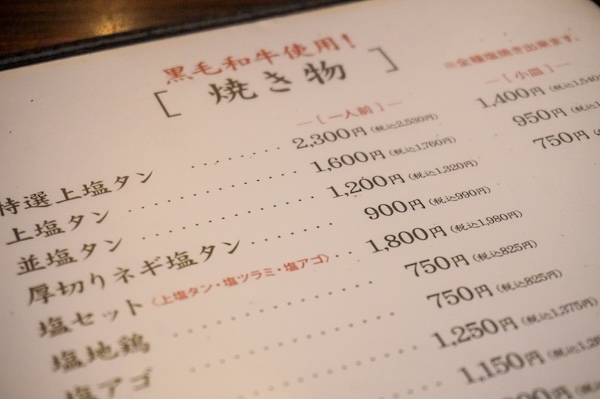 黒毛和牛使用!
[ 焼き物 ]
※全種塩焼き出来ます。
―[一人前]― ―(小皿)―
特選上塩タン ········ 2,300円(税込2,530円) 1,400円(税込1,540
上塩タン ············ 1,600円(税込1,760円) 950円(税込
並塩タン ············ 1,200円(税込1,320円) 750円
厚切りネギ塩タン ······· 900円(税込990円)
塩セット〈上塩タン・塩ツラミ・塩アゴ〉·· 1,800円(税込1,980円)
塩地鶏 ············ 750円(税込825円)
塩アゴ ············ 750円(税込825円)
1,250円(税込1,375円)
1,150円(税込